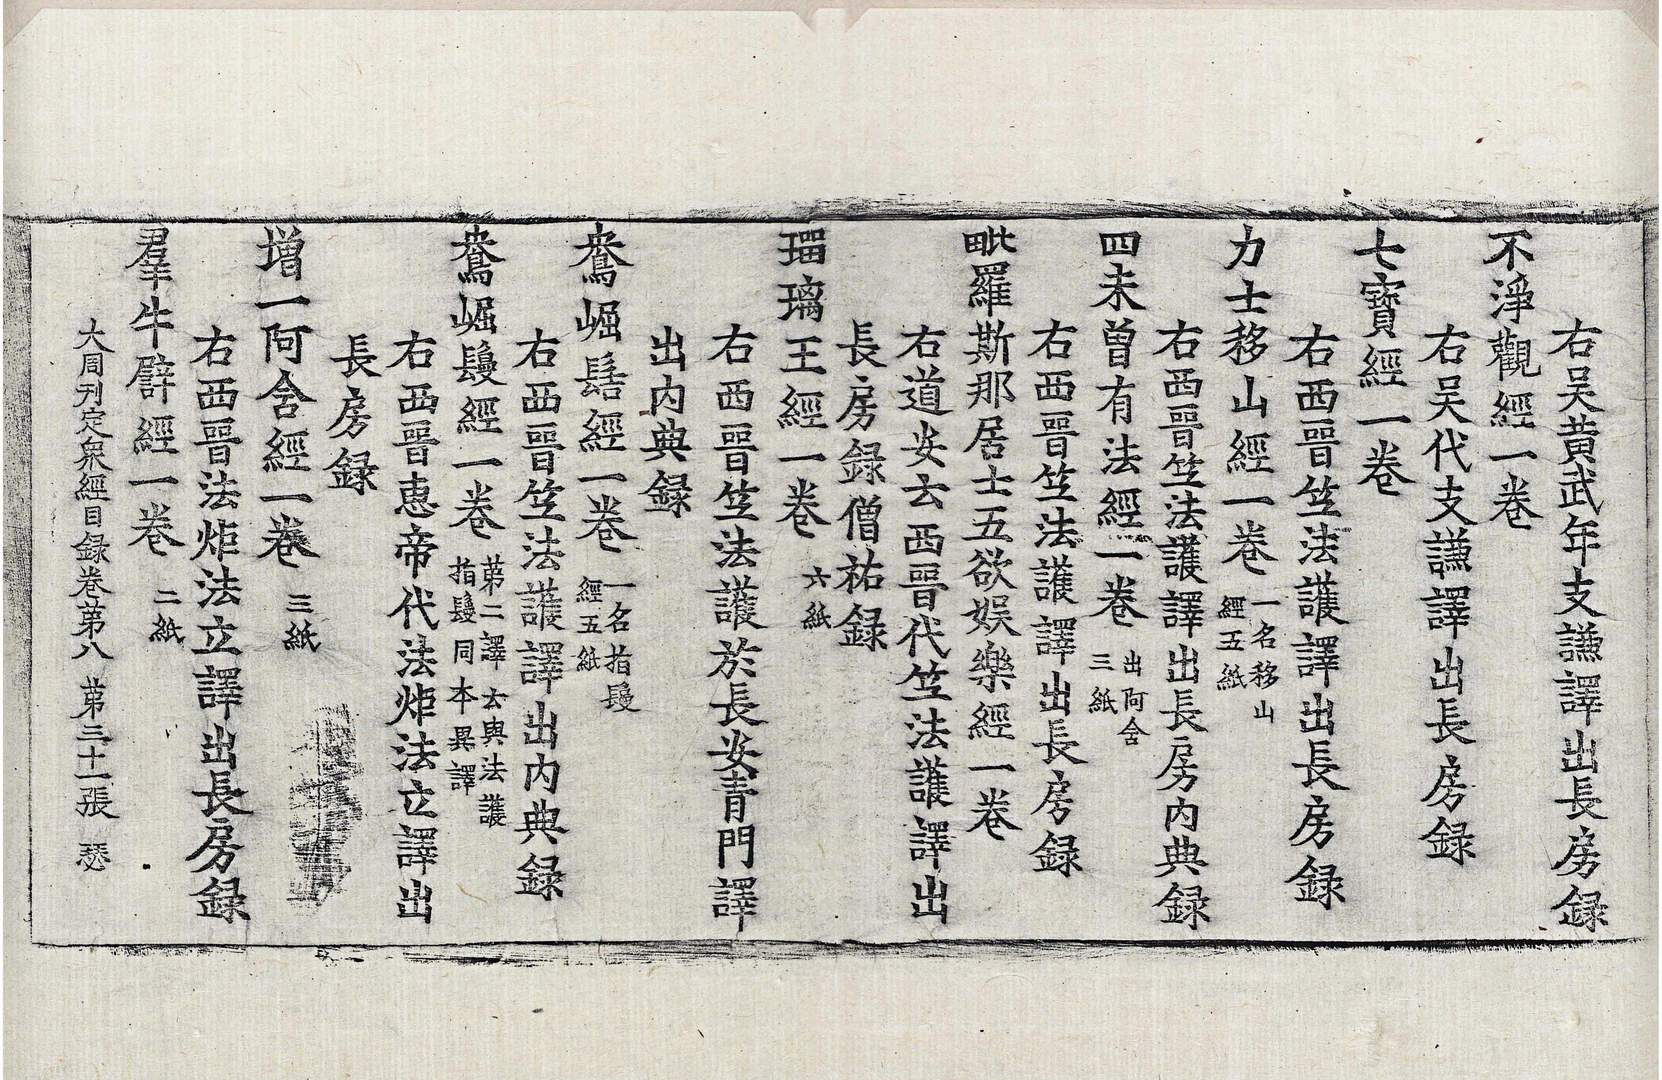 右吴黄武年支謙譯出長房録
不淨觀經一卷
右吴代支謙譯出長房録
七寶經一卷
右西晉竺法護譯出長房録
力士移山經一卷 一名移山
經五紙
右西晉竺法護譯出長房内典録
四未曾有法經一卷 出阿含
三紙
右西晉竺法護譯出長房録
毗羅斯那居士五欲娛樂經一卷
右道安云西晉代竺法護譯出
長房録僧祐録
瑠璃王經一卷 六紙
右西晉竺法護於長安青門譯
出内典録
鴦崛髻經一卷 一名指鬘
經五紙
右西晉竺法護譯出内典録
鴦崛鬘經一卷 苐二譯云與法護
指鬘同本異譯
右西晉惠帝代法炬法立譯出
長房録
增一阿含經一卷 三紙
右西晉法炬法立譯出長房録
羣牛譬經一卷 二紙
大周刊定衆經目録卷苐八 苐三十一張 瑟